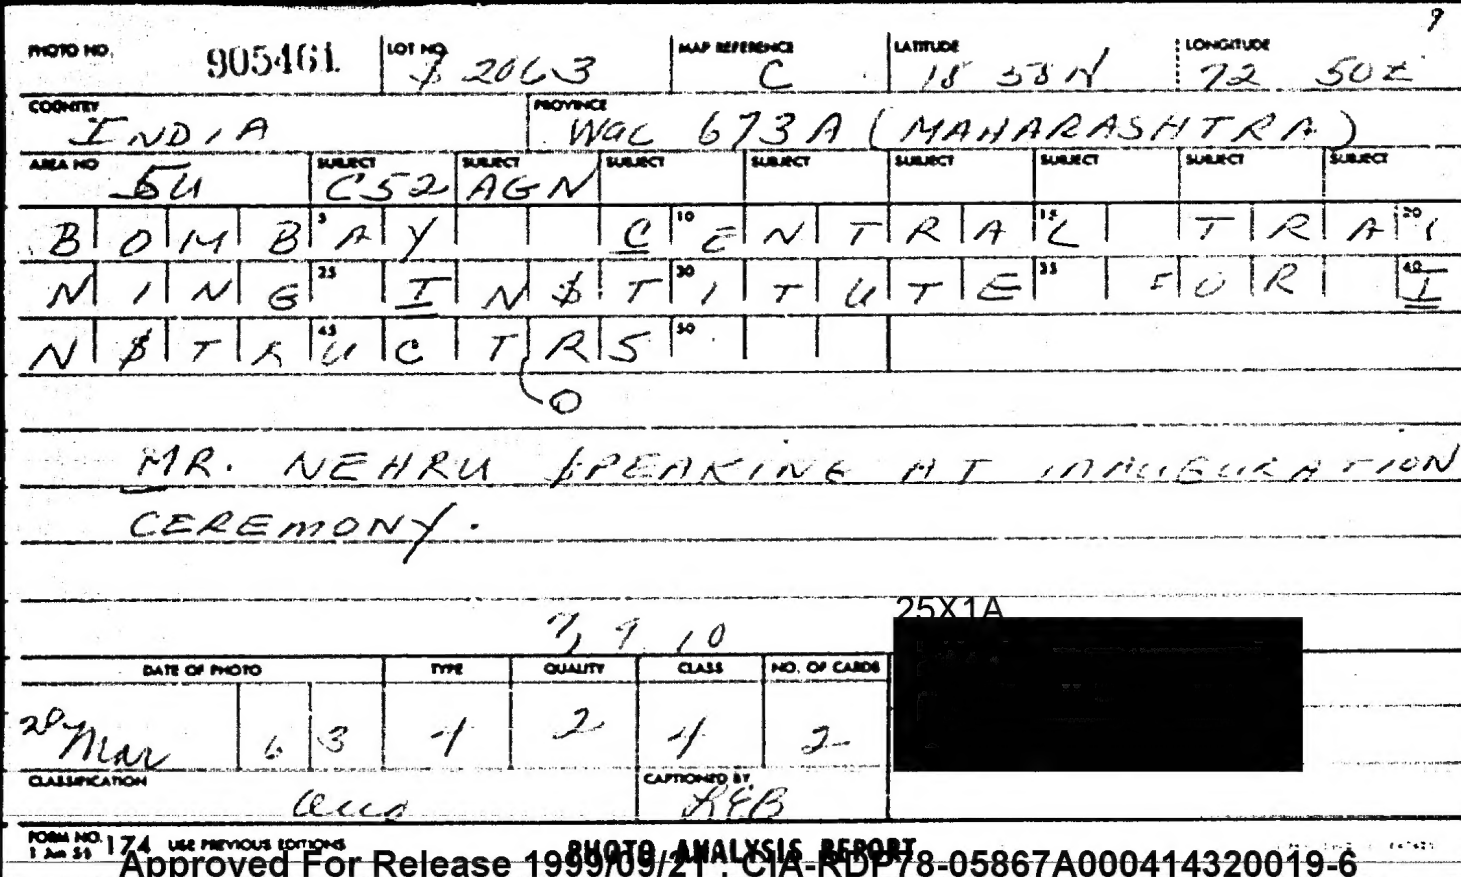 9
PHOTO NO. 905461 LOT NO. $ 2063 MAP REFERENCE C LATITUDE 18 58 N LONGITUDE 72 50 E
COUNTRY INDIA PROVINCE WAC 673A (MAHARASHTRA)
AREA NO 5U SUBJECT C52 SUBJECT AGN SUBJECT SUBJECT SUBJECT SUBJECT SUBJECT SUBJECT
BOMBAY CENTRAL TRAI
NING IN$TITUTE FOR I
N$TRUCTRS
O
MR. NEHRU $PEAKING AT INAUGURATION
CEREMONY.
7, 9, 10
25X1A
DATE OF PHOTO TYPE QUALITY CLASS NO. OF CARDS
Mar 63 4 2 4 2
CLASSIFICATION CAPTIONED BY
FORM NO. 174 USE PREVIOUS EDITIONS PHOTO ANALYSIS REPORT
1 Jun 55
Approved For Release 1999/09/21 : CIA-RDP78-05867A000414320019-6